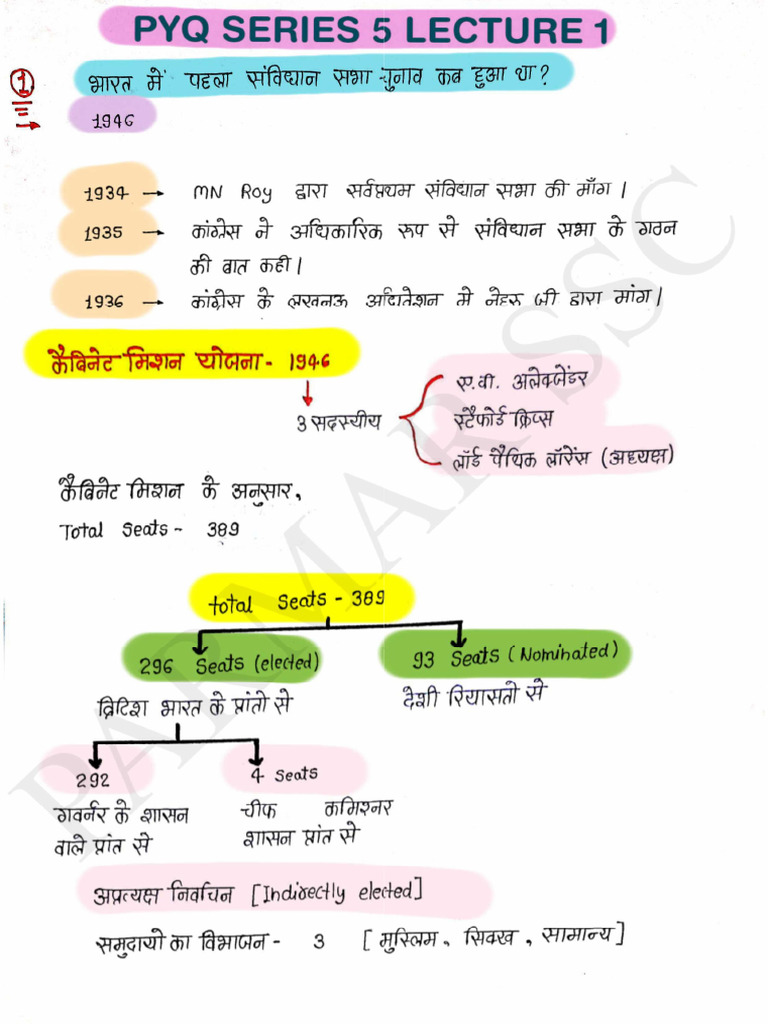 PYQ SERIES 5 LECTURE 1
① भारत में पहला संविधान सभा चुनाव कब हुआ था?
1946
1934 → MN Roy द्वारा सर्वप्रथम संविधान सभा की माँग।
1935 → कांग्रेस ने अधिकारिक रूप से संविधान सभा के गठन
की बात कही।
1936 → कांग्रेस के लखनऊ अधिवेशन मे नेहरू जी द्वारा मांग।
कैबिनेट मिशन योजना - 1946
3 सदस्यीय
ए.वी. अलेक्जेंडर
स्टैफोर्ड क्रिप्स
लॉर्ड पैथिक लॉरेंस (अध्यक्ष)
कैबिनेट मिशन के अनुसार,
Total Seats - 389
Total Seats - 389
296 Seats (elected)
93 Seats (Nominated)
ब्रिटिश भारत के प्रांतो से
देशी रियासतो से
292
4 Seats
गवर्नर के शासन
वाले प्रांत से
चीफ कमिश्नर
शासन प्रांत से
अप्रत्यक्ष निर्वाचन [Indirectly elected]
समुदायो का विभाजन - 3 [मुस्लिम, सिक्ख, सामान्य]
PARMAR SSC